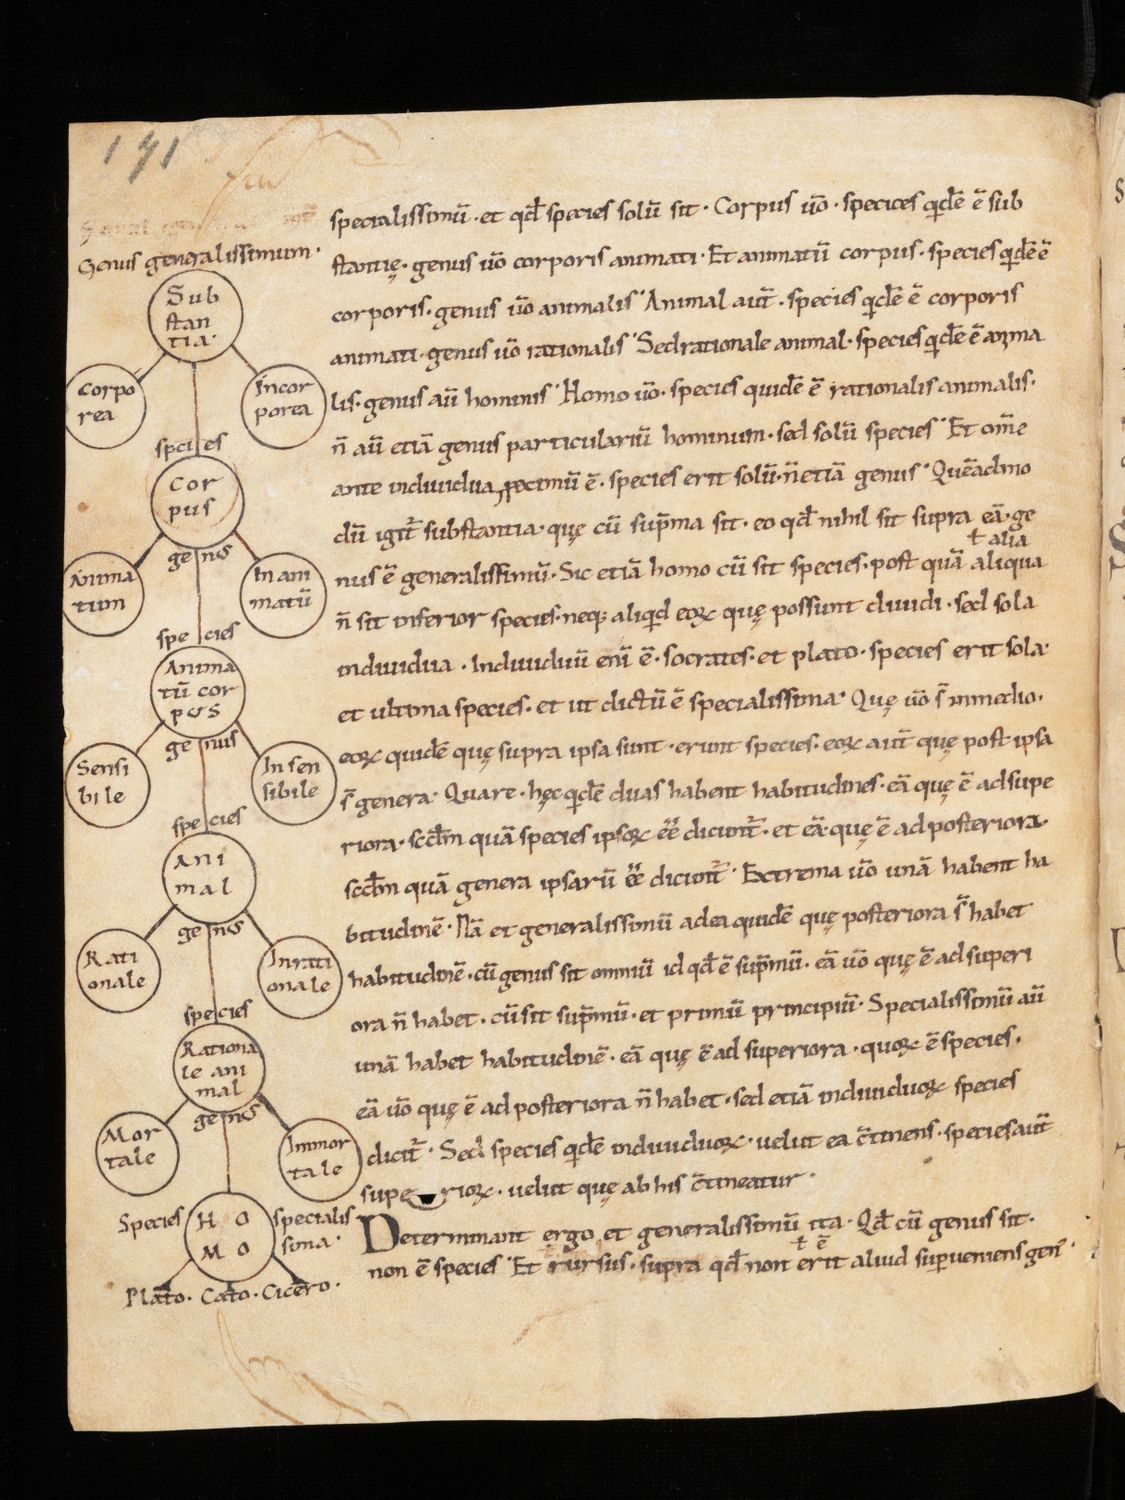 171
Genus generalissimum·
Sub
stan
tia·
Corpo
rea
Incor
porea
species
Cor
pus
genus
Anima
tum
Inani
matū
species
Anima
tū cor
pus
genus
Sensi
bile
Insen
sibile
species
Ani
mal
genus
Rati
onale
Inrati
onale
species
Rationa
le ani
mal
genus
Mor
tale
Immor
tale
Species
HO
MO
specialis
sima·
Plato· Cato· Cicero·
specialissimū· et qđ species solū sit· Corpus ūo· species qdē ē sub
stantię· genus ūo corporis animati· Et animatū corpus· species qdē ē
corporis· genus ūo animalis· Animal aut̄· species qdē ē corporis
animati· genus ūo rationalis· Sed rationale animal· species qdē ē anima
lis· genus aū hominis· Homo ūo· species quidē ē rationalis animalis·
n̄ aū etiā genus particulariū hominum· sed solū species· Et om̄e
ante individua proximū ē· species erit solū· n̄ etiā genus· Queādmo
dū igit̄ substantia· quę cū sup̄ma sit· eo qđ nihil sit supra eā· ge
ł alia
nus ē generalissimū· Sic etiā homo cū sit species· post quā aliqua
n̄ sit inferior species· neq; aliqd eoꝝ quę possunt dividi· sed sola
individua· Individuū eni ē· socrates· et plato· species erit sola·
et ultima species· et ut dictū ē specialissima· Quę ūo s̄ in medio·
eoꝝ quidē quę supra ipsa sunt· erunt species· eoꝝ aut̄ quę post ipsa
s̄ genera· Quare· hęc qdē duas habent habitudines· eā quę ē ad supe
riora· scđm quā species ipsoꝝ ēē dicunt̄· et eā quę ē ad posteriora·
scđm quā genera ipsarū ēē dicunt̄· Extrema ūo unā habent ha
bitudinē· Nā et generalissimū ad ea quidē quę posteriora s̄ habet
habitudinē· cū genus sit omniū id qđ ē sup̄mū· eā ūo quę ē ad superi
ora n̄ habet· cū sit sup̄mū· et primū principiū· Specialissimū aū
unā habet habitudinē· eā quę ē ad superiora· quoꝝ ē species·
eā ūo quę ē ad posteriora n̄ habet· sed etiā individuoꝝ species
dicit̄· Sed species qdē individuoꝝ· velut ea c̄tinens· species aut̄
superioꝝ· velut quę ab his c̄tineatur·
Determinant ergo et generalissimū ita· Qđ cū genus sit·
ł ē
non ē species· Et rursus· supra qđ non erit aliud supveniens gen᾽·